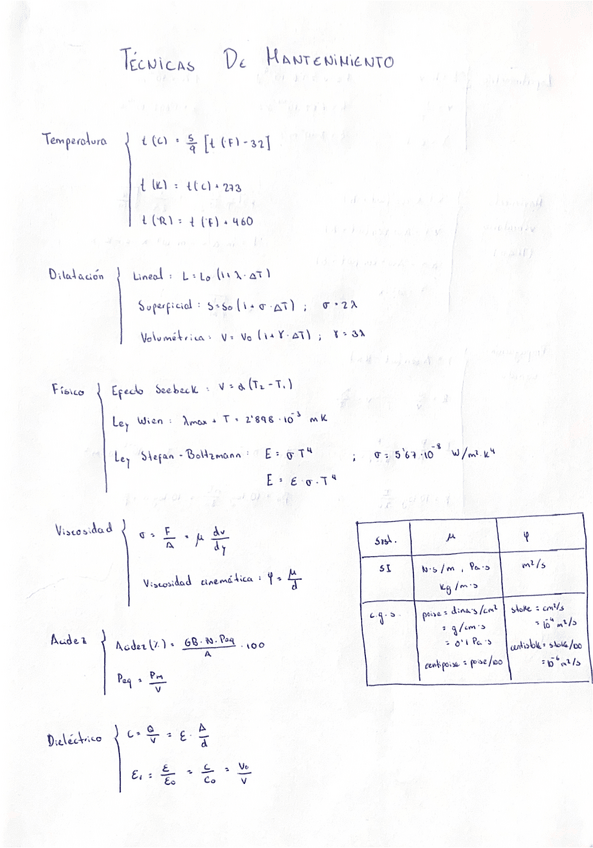 TÉCNICAS DE MANTENIMIENTO
Temperatura { t (C) = 5/9 [t (F) - 32]
t (K) = t(C) + 273
t (R) = t (F) + 460
Dilatación { Lineal: L = L₀ (1 + λ · ΔT)
Superficial: S = S₀ (1 + σ · ΔT) ; σ = 2λ
Volumétrica: V = V₀ (1 + γ · ΔT) ; γ = 3λ
Físico { Efecto Seebeck: V = α (T₂ - T₁)
Ley Wien: λmax * T = 2'898 · 10⁻³ m K
Ley Stefan - Boltzmann: E = σ T⁴ ; σ = 5'67 · 10⁻⁸ W/m² K⁴
E = ε · σ · T⁴
Viscosidad { σ = F/A = μ dv/dy
Viscosidad cinemática: φ = μ/d
Sist. μ φ
SI N·s/m, Pa·s m²/s
Kg/m·s
c.g.s. poise = dina·s/cm² stoke = cm²/s
= g/cm·s = 10⁻⁴ m²/s
= 0'1 Pa·s centistok = stoke/100
centipoise = poise/100 = 10⁻⁶ m²/s
Acidez { Acidez (%) = GB · N · Peq / A · 100
Peq = Pm/V
Dieléctrico { C = Q/V = ε · A/d
εr = ε/ε₀ = C/C₀ = V₀/V